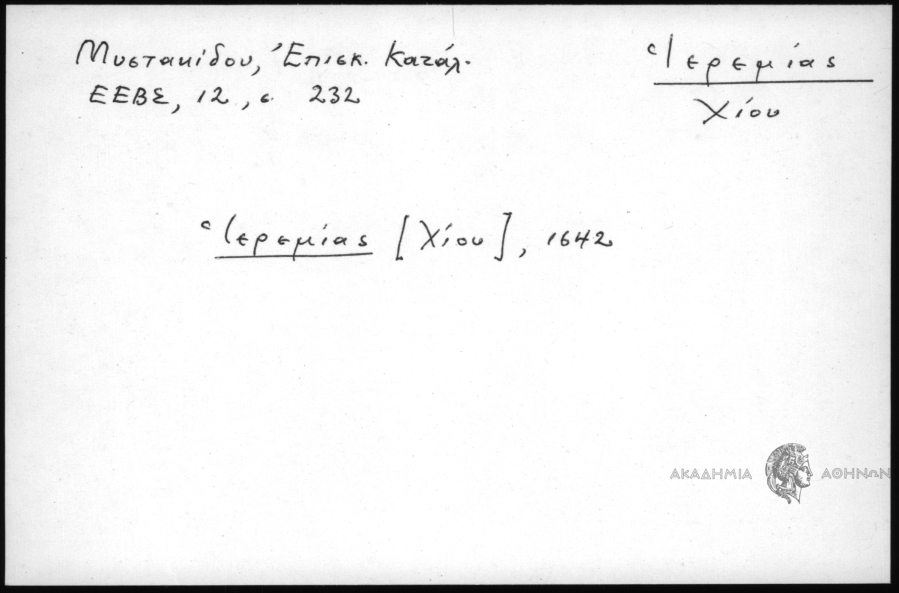 Μυστακίδου, Ἐπισκ. Κατάλ.
ΕΕΒΣ, 12, σ. 232
Ἱερεμίας
Χίου
Ἱερεμίας [Χίου], 1642
ΑΚΑΔΗΜΙΑ ΑΘΗΝΩΝ